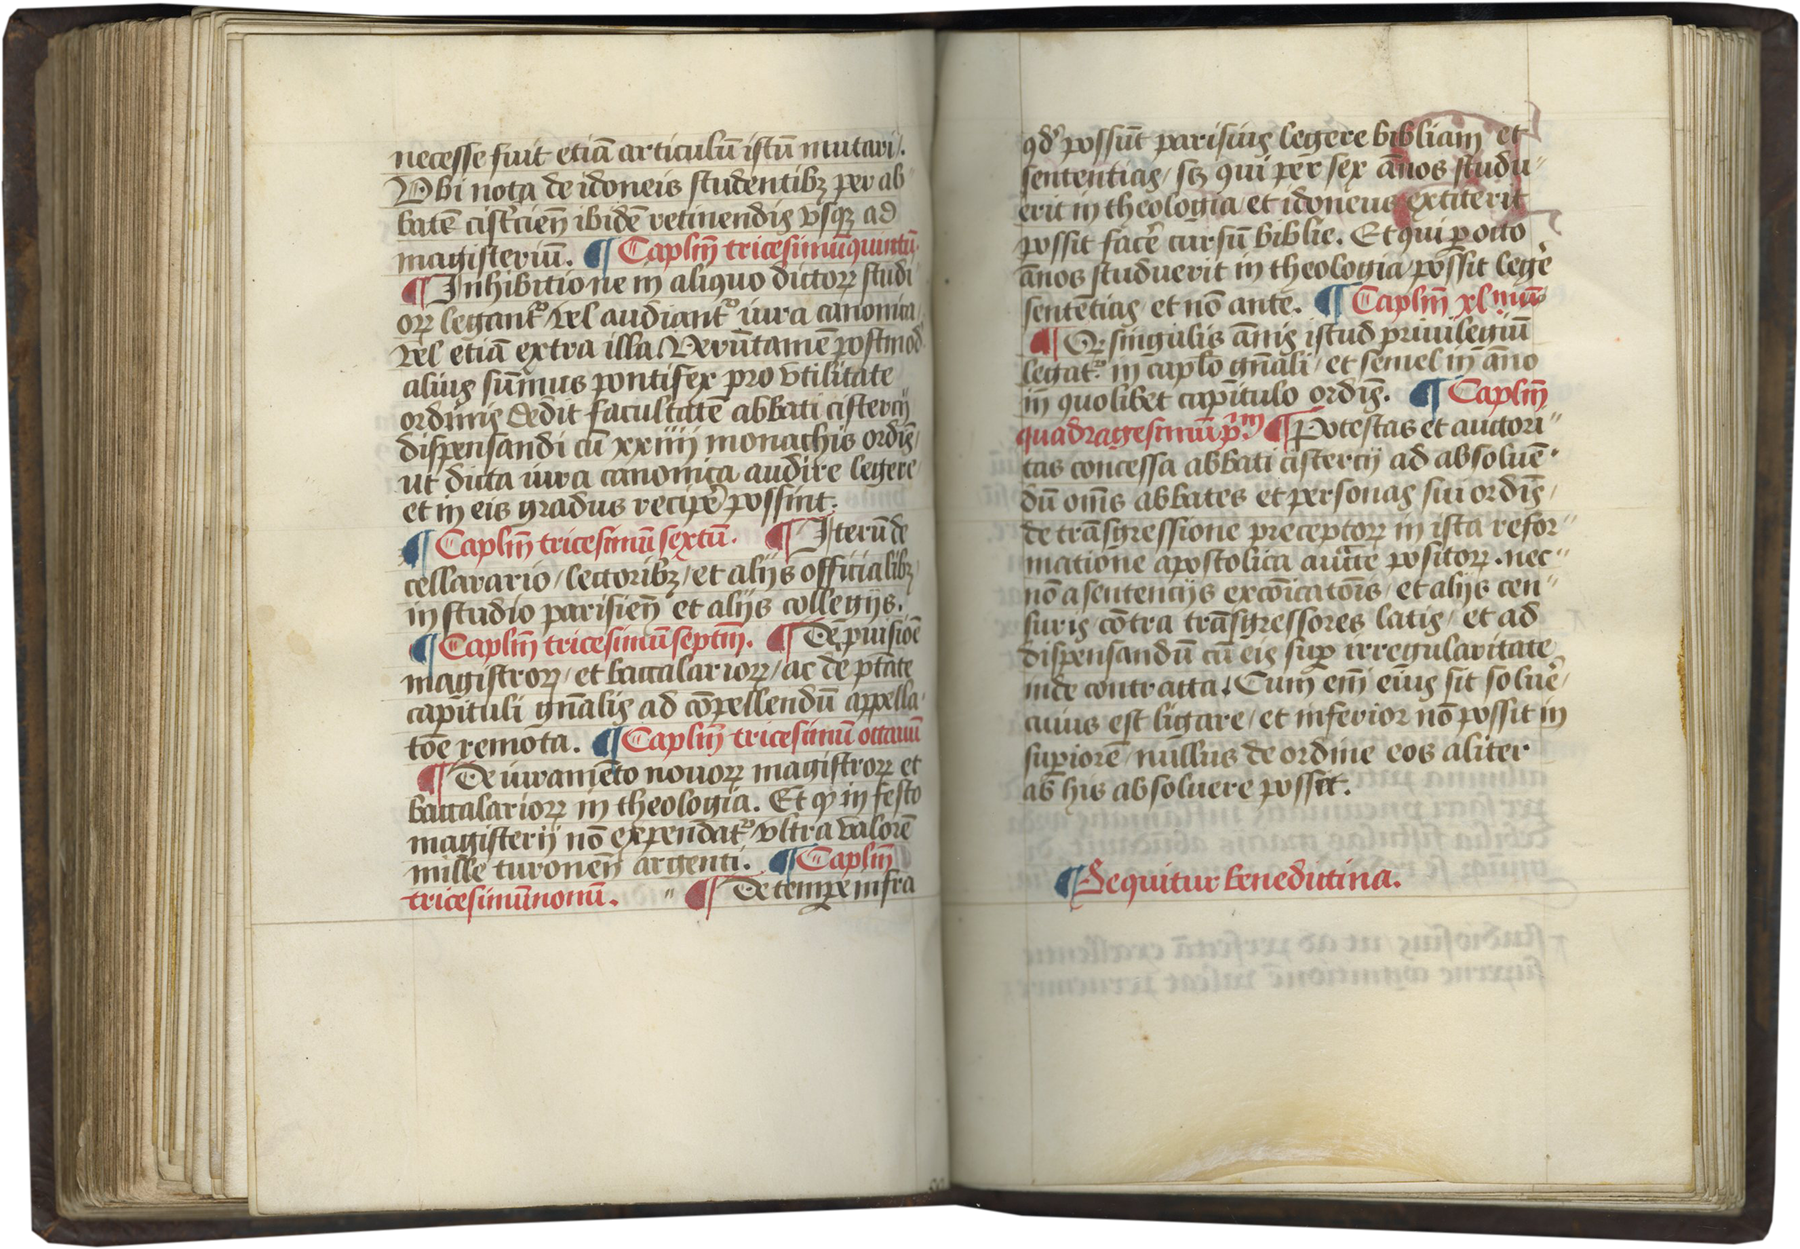 necesse fuit etiā articulū istū mutari.
Vbi nota de idoneis studentibꝫ per ab
batē cist̄cień ibidē retinendis vsqꝫ ad
magisteriū. ¶ Caplm̄ tricesimūquintū.
¶ Inhibitio ne in aliquo dictoꝝ studi
oꝝ legant᷑ / vel audiant᷑ iura canonica /
vel etiā extra illa. Verūtamē postmod̄
alius sūmus pontifex pro vtilitate
ordinis dedit facultatē abbati cistercij
dispensandi cū xxiiij monachis ordiś /
ut dicta iura canonica audire legere
et in eis gradus recipe᷑ possint.
¶ Caplm̄ tricesimū sextū. ¶ Iterū de
cellarario / lectoribꝫ / et alijs officialibꝫ
in studio parisień et alijs collegijs.
¶ Caplm̄ tricesimūseptm̄. ¶ De puisiōe
magistroꝝ / et baccalarioꝝ / ac de ptāte
capituli gn̄alis ad cōpellendū appella
tōe remota. ¶ Caplm̄ tricesimū octauū
¶ De iuramēto nouoꝝ magistroꝝ et
baccalarioꝝ in theologia. Et ꝙ in festo
magisterij nō expendat᷑ vltra valorē
mille turoneń argenti. ¶ Caplm̄
tricesimūnonū. " ¶ De tempe infra
qd̓ possūt parisius legere bibliam et
sententias / scꝫ qui per sex ānos studu"
erit in theologia et idoneus extiterit
possit face᷑ cursū biblie. Et qui p octo
ānos studuerit in theologia possit lege᷑
sentētias et nō ante. ¶ Caplm̄ xl.mū
¶ Qꝛ singulis ānis istud priuilegiū
legat᷑ in caplo gn̄ali / et semel in āno
in quolibet capitulo ordiś. ¶ Caplm̄
quadragesimū p̄.m ¶ Potestas et auctori"
tas concessa abbati cistercij ad absoluē"
dū om̄s abbates et personas sui ordiś /
de trāsgressione preceptoꝝ in ista refor"
matione apostolica aūtte positoꝝ. nec"
nō a sentencijs excōicatōis / et alijs cen"
suris cōtra trāsgressores latis / et ad
dispensandū cū eis sup irregularitate
inde contracta. Cum em̄ eius sit solue᷑ /
cuius est ligare / et inferior nō possit in
supiorē / nullus de ordine eos aliter
ab his absoluere possit.
¶ Sequitur benedictina.